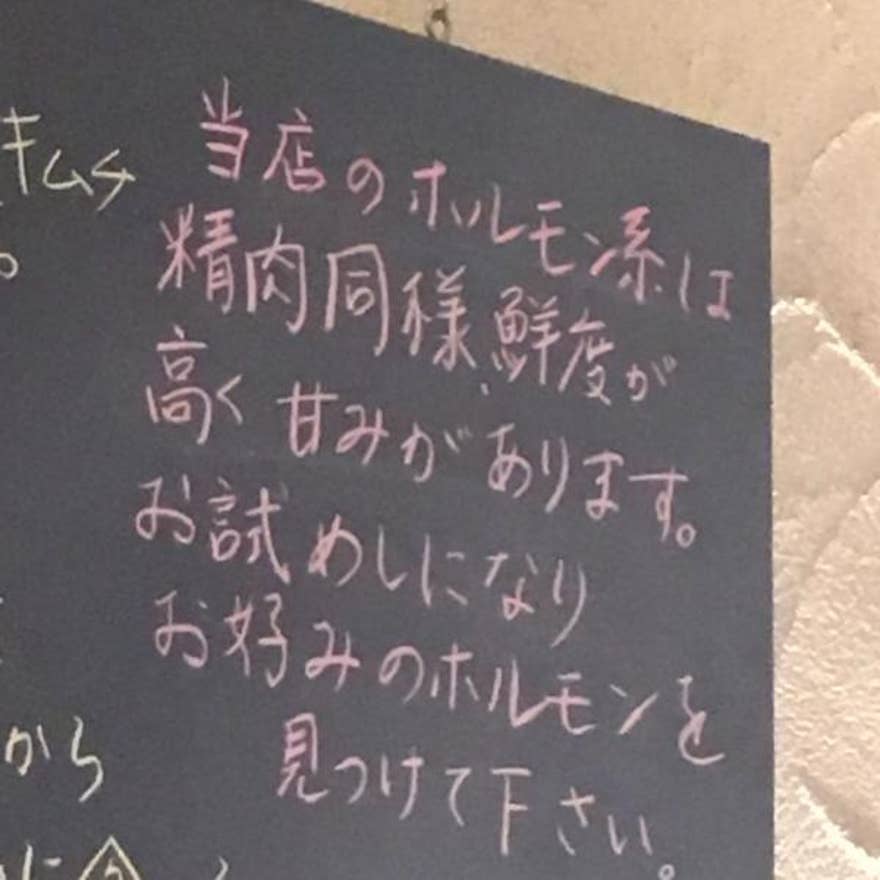 当店のホルモン系は
精肉同様、鮮度が
高く甘みがあります。
お試めしになり
お好みのホルモンを
見つけて下さい。
キムチ
から
に